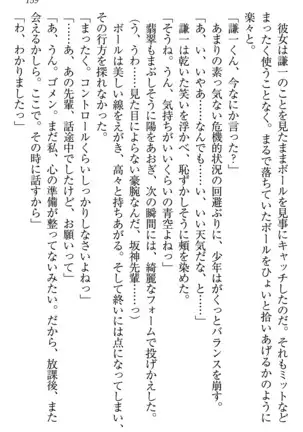 139
彼女は謙一のことを見たままボールを見事にキャッチしたのだ。しかもミットを
まったく使うことなく。まるで落ちていたボールをひょいと拾いあげるかのように
楽々と。
「謙一くん、今なにか言った?」
「あ、い、いやあ……なんでも……い、いい天気だな、と」
あまりの素っ気ない危機的状況の回避ぶりに、少年はがくっとバランスを崩す。
謙一は乾いた笑いを浮かべ、恥ずかしそうに頬を染めた。
「そうね。うん、気持ちがいいくらいの青空だよねっ」
翡翠もまぶしそうに陽をあおぎ、次の瞬間には、綺麗なフォームで投げかえした。
(う、うわ……見た目によらない豪腕なんだな、坂神先輩って)
ボールは美しい線をえがき、高々と持ちあがる。そして終いには点になってしまい、
その行方を探れなかった。
「まったく。コントロールくらいしっかりしなさいよねっ」
「……あ、あの先輩、話途中でしたけど、お願いって」
「あ、うん。ゴメン。まだ私、心の準備が整ってないんだ。だから、放課後、また
会えるかしら。ここで。その時に話すから」
「わ、わかりましたっ」